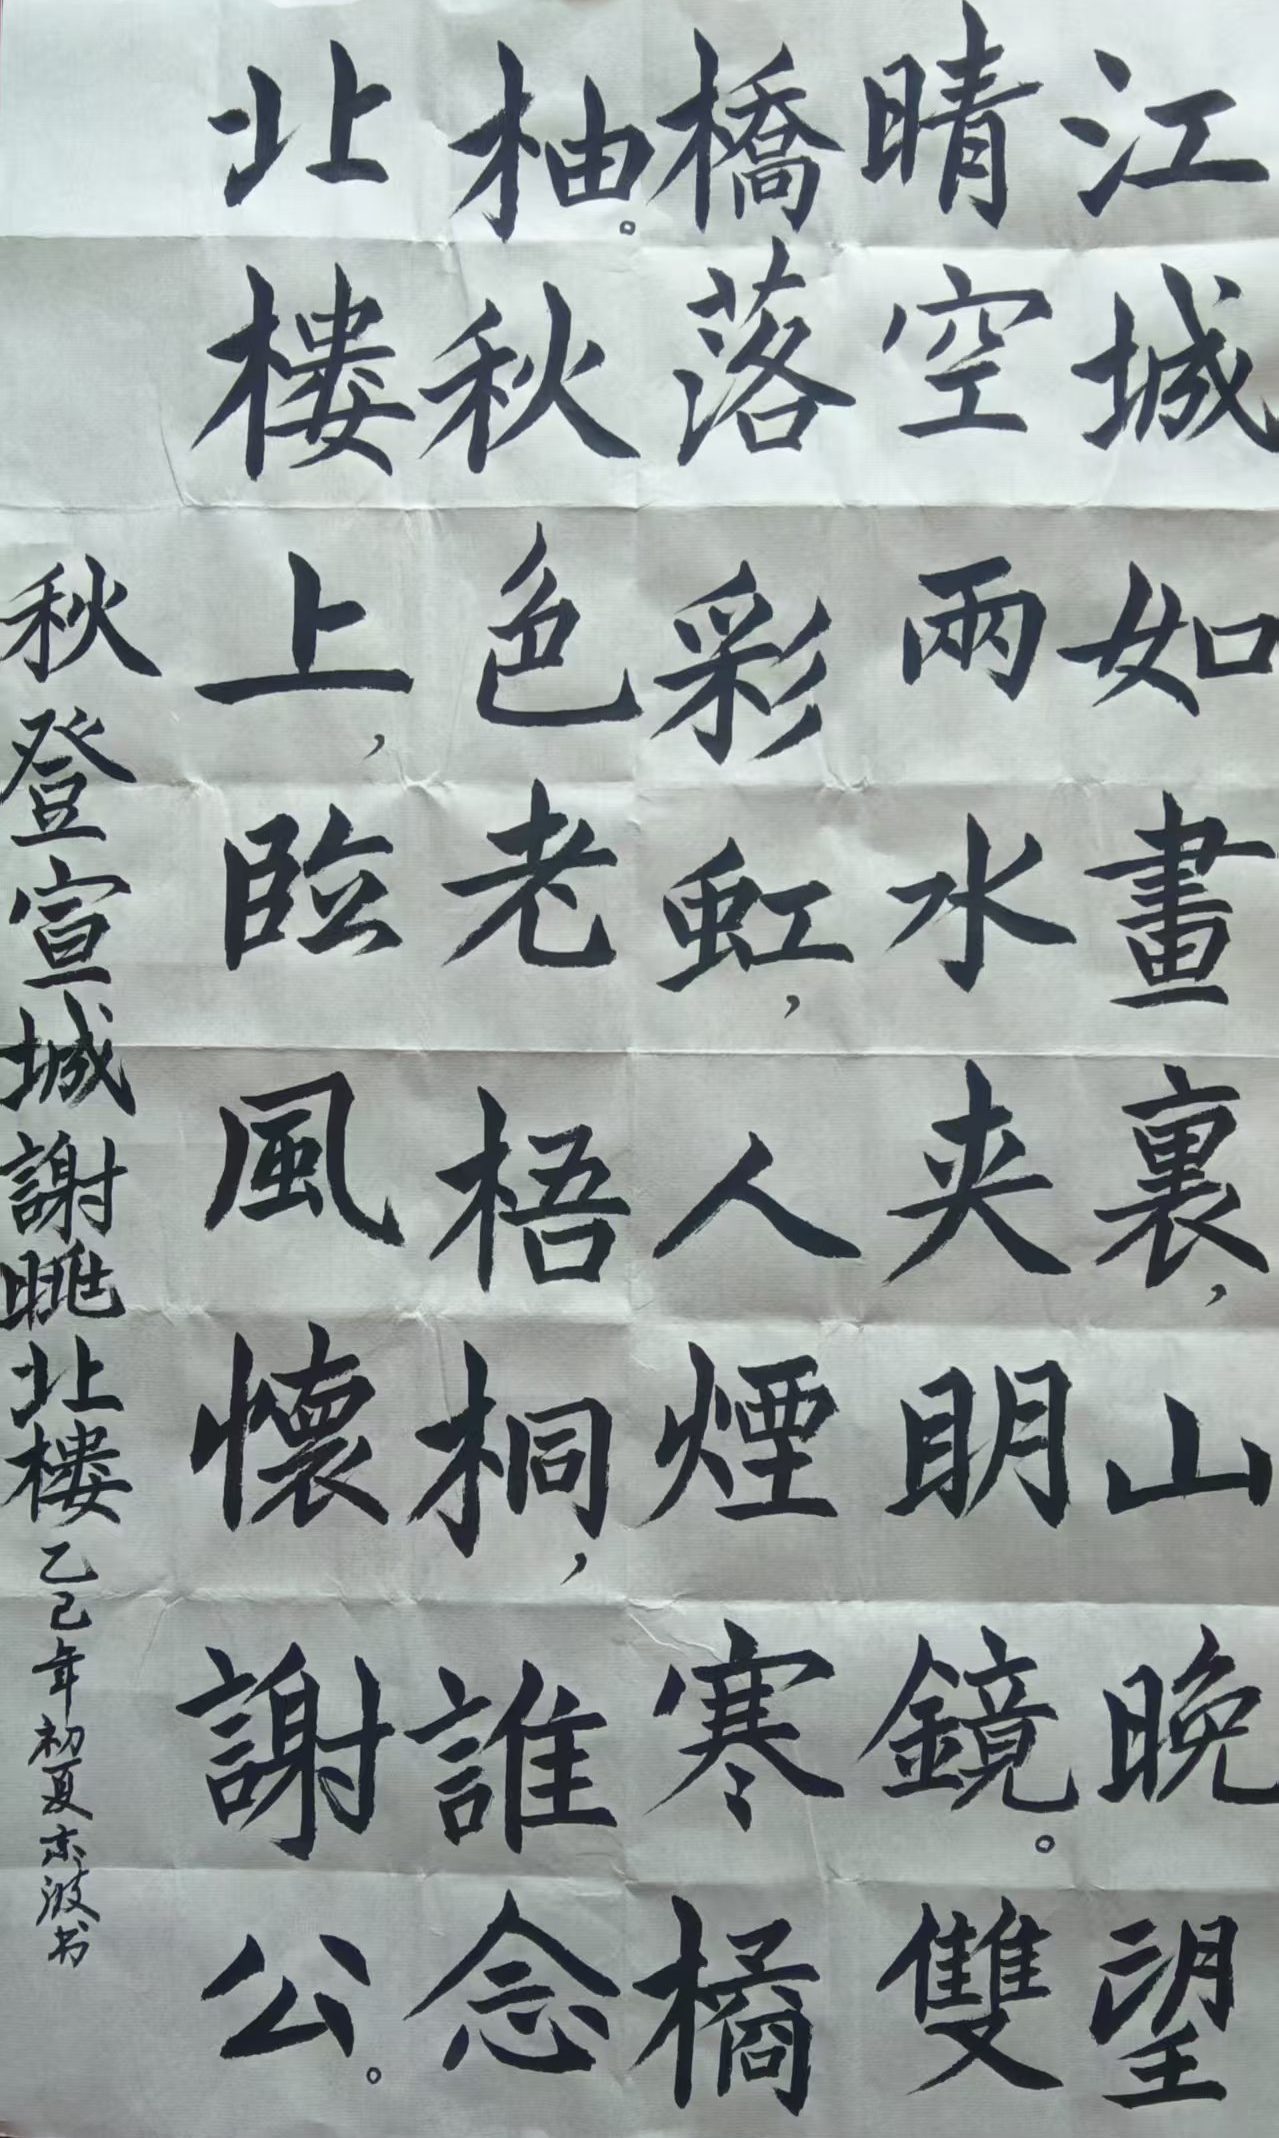 江城如畫裏，山晚望
晴空兩水夾明鏡。雙
橋落彩虹，人煙寒橘
柚。秋色老梧桐，誰念
北樓上，臨風懷謝公。
秋登宣城謝眺北樓 乙巳年初夏 波书